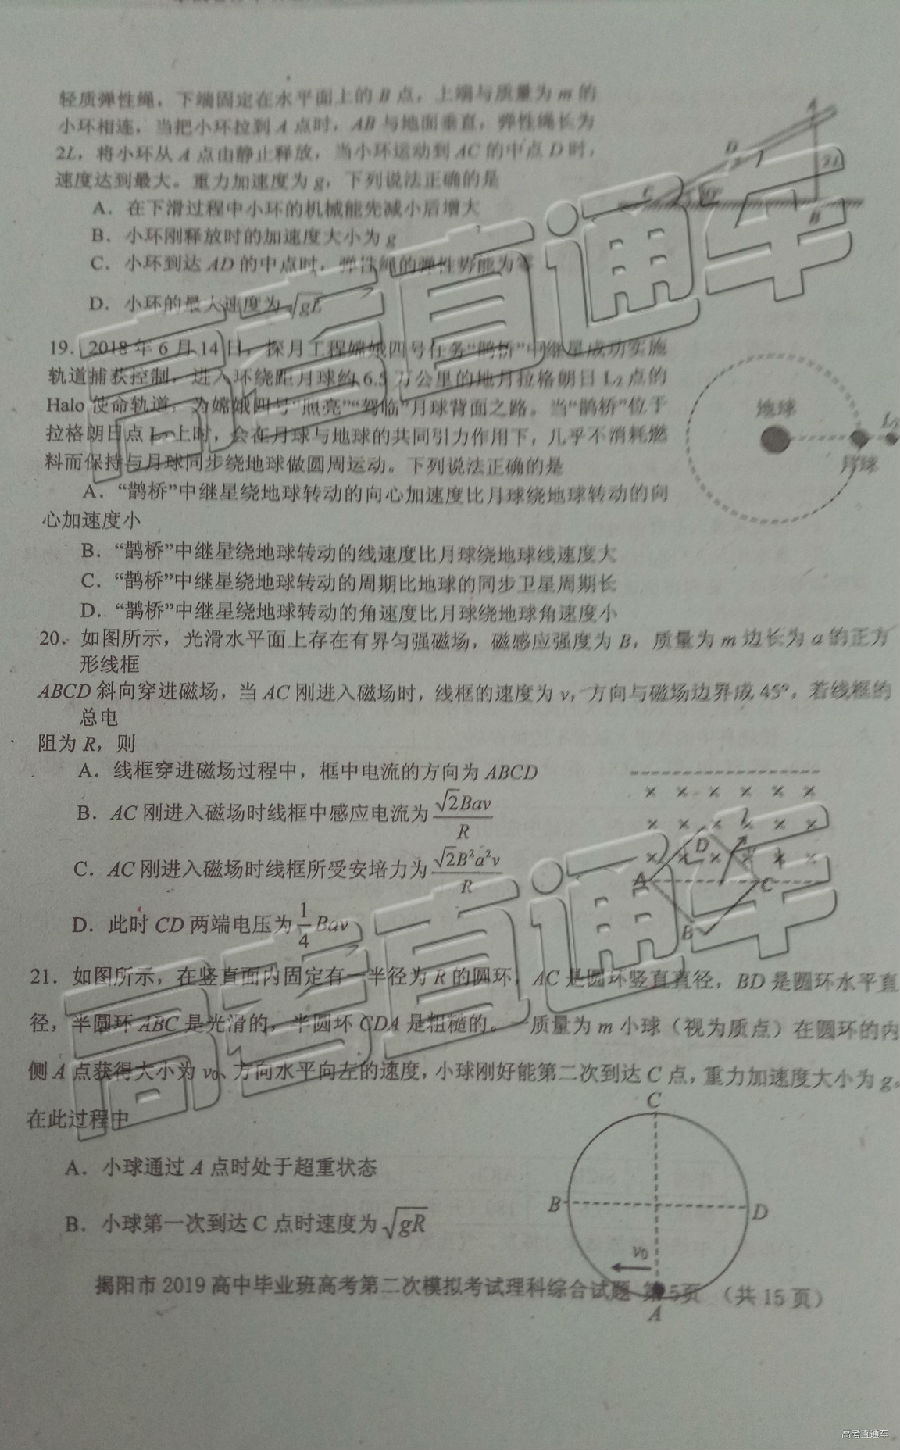 轻质弹性绳，下端固定在水平面上的 B 点，上端与质量为 m 的
小环相连，当把小环拉到 A 点时，AB 与地面垂直，弹性绳长为
2L，将小环从 A 点由静止释放，当小环运动到 AC 的中点 D 时，
速度达到最大。重力加速度为 g，下列说法正确的是
A．在下滑过程中小环的机械能先减小后增大
B．小环刚释放时的加速度大小为 g
C．小环到达 AD 的中点时，弹性绳的弹性势能为零
D．小环的最大速度为√gL
A
D
2L
C
30°
B
19．2018 年 6 月 14 日，探月工程嫦娥四号任务“鹊桥”中继星成功实施
轨道捕获控制，进入环绕距月球约 6.5 万公里的地月拉格朗日 L₂ 点的
Halo 使命轨道，为嫦娥四号“照亮”“驾临”月球背面之路。当“鹊桥”位于
拉格朗日点 L₂ 上时，会在月球与地球的共同引力作用下，几乎不消耗燃
料而保持与月球同步绕地球做圆周运动。下列说法正确的是
地球
L₂
月球
A．“鹊桥”中继星绕地球转动的向心加速度比月球绕地球转动的向
心加速度小
B．“鹊桥”中继星绕地球转动的线速度比月球绕地球线速度大
C．“鹊桥”中继星绕地球转动的周期比地球的同步卫星周期长
D．“鹊桥”中继星绕地球转动的角速度比月球绕地球角速度小
20．如图所示，光滑水平面上存在有界匀强磁场，磁感应强度为 B，质量为 m 边长为 a 的正方
形线框
ABCD 斜向穿进磁场，当 AC 刚进入磁场时，线框的速度为 v，方向与磁场边界成 45°，若线框的
总电
阻为 R，则
A．线框穿进磁场过程中，框中电流的方向为 ABCD
B．AC 刚进入磁场时线框中感应电流为 √2Bav/R
C．AC 刚进入磁场时线框所受安培力为 √2B²a²v/R
D．此时 CD 两端电压为 1/4 Bav
D
A
C
B
21．如图所示，在竖直面内固定有一半径为 R 的圆环，AC 是圆环竖直直径，BD 是圆环水平直
径，半圆环 ABC 是光滑的，半圆环 CDA 是粗糙的。一质量为 m 小球（视为质点）在圆环的内
侧 A 点获得大小为 v₀、方向水平向左的速度，小球刚好能第二次到达 C 点，重力加速度大小为 g。
在此过程中
A．小球通过 A 点时处于超重状态
B．小球第一次到达 C 点时速度为√gR
C
B
D
v₀
A
揭阳市 2019 高中毕业班高考第二次模拟考试理科综合试题 第 5页 （共 15 页）
高考直通车
高考直通车
高考直通车